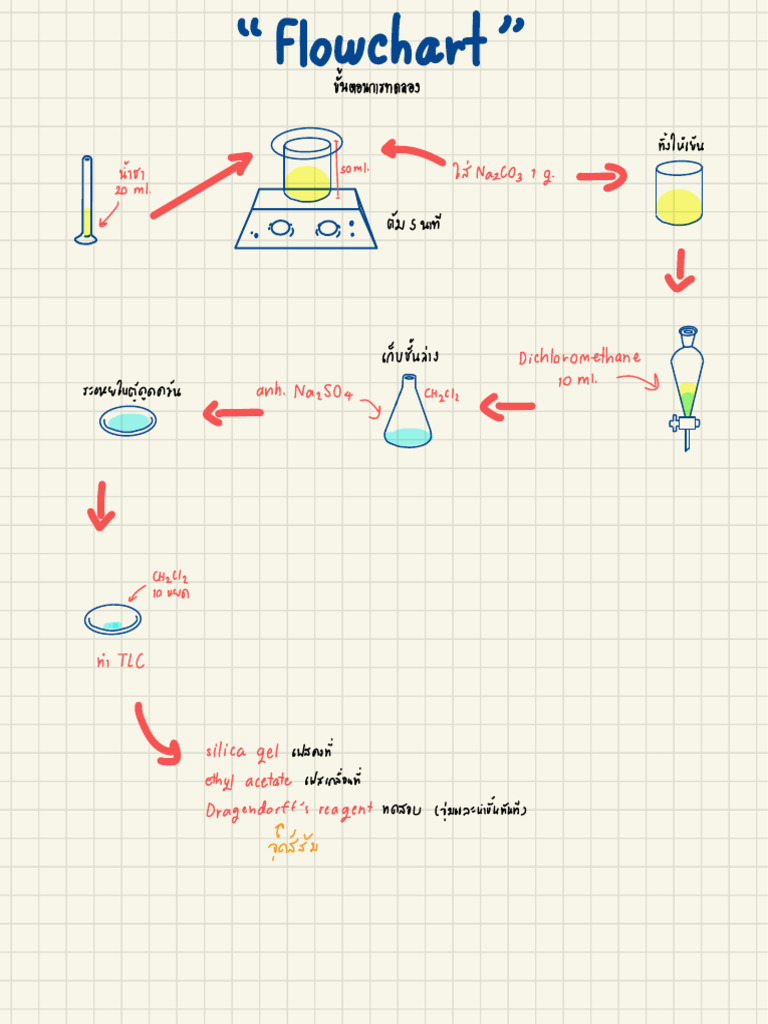 "Flowchart"
ขั้นตอนการทดลอง
น้ำชา
20 ml.
50 ml.
ต้ม 5 นาที
ใส่ Na2CO3 1 g.
ทิ้งให้เย็น
Dichloromethane
10 ml.
เก็บชั้นล่าง
CH2Cl2
anh. Na2SO4
ระเหยในตู้ดูดควัน
CH2Cl2
10 หยด
ทำ TLC
silica gel เฟสคงที่
ethyl acetate เฟสเคลื่อนที่
Dragendorff's reagent ทดสอบ (จุ่มและนำขึ้นทันที)
จุดสีส้ม